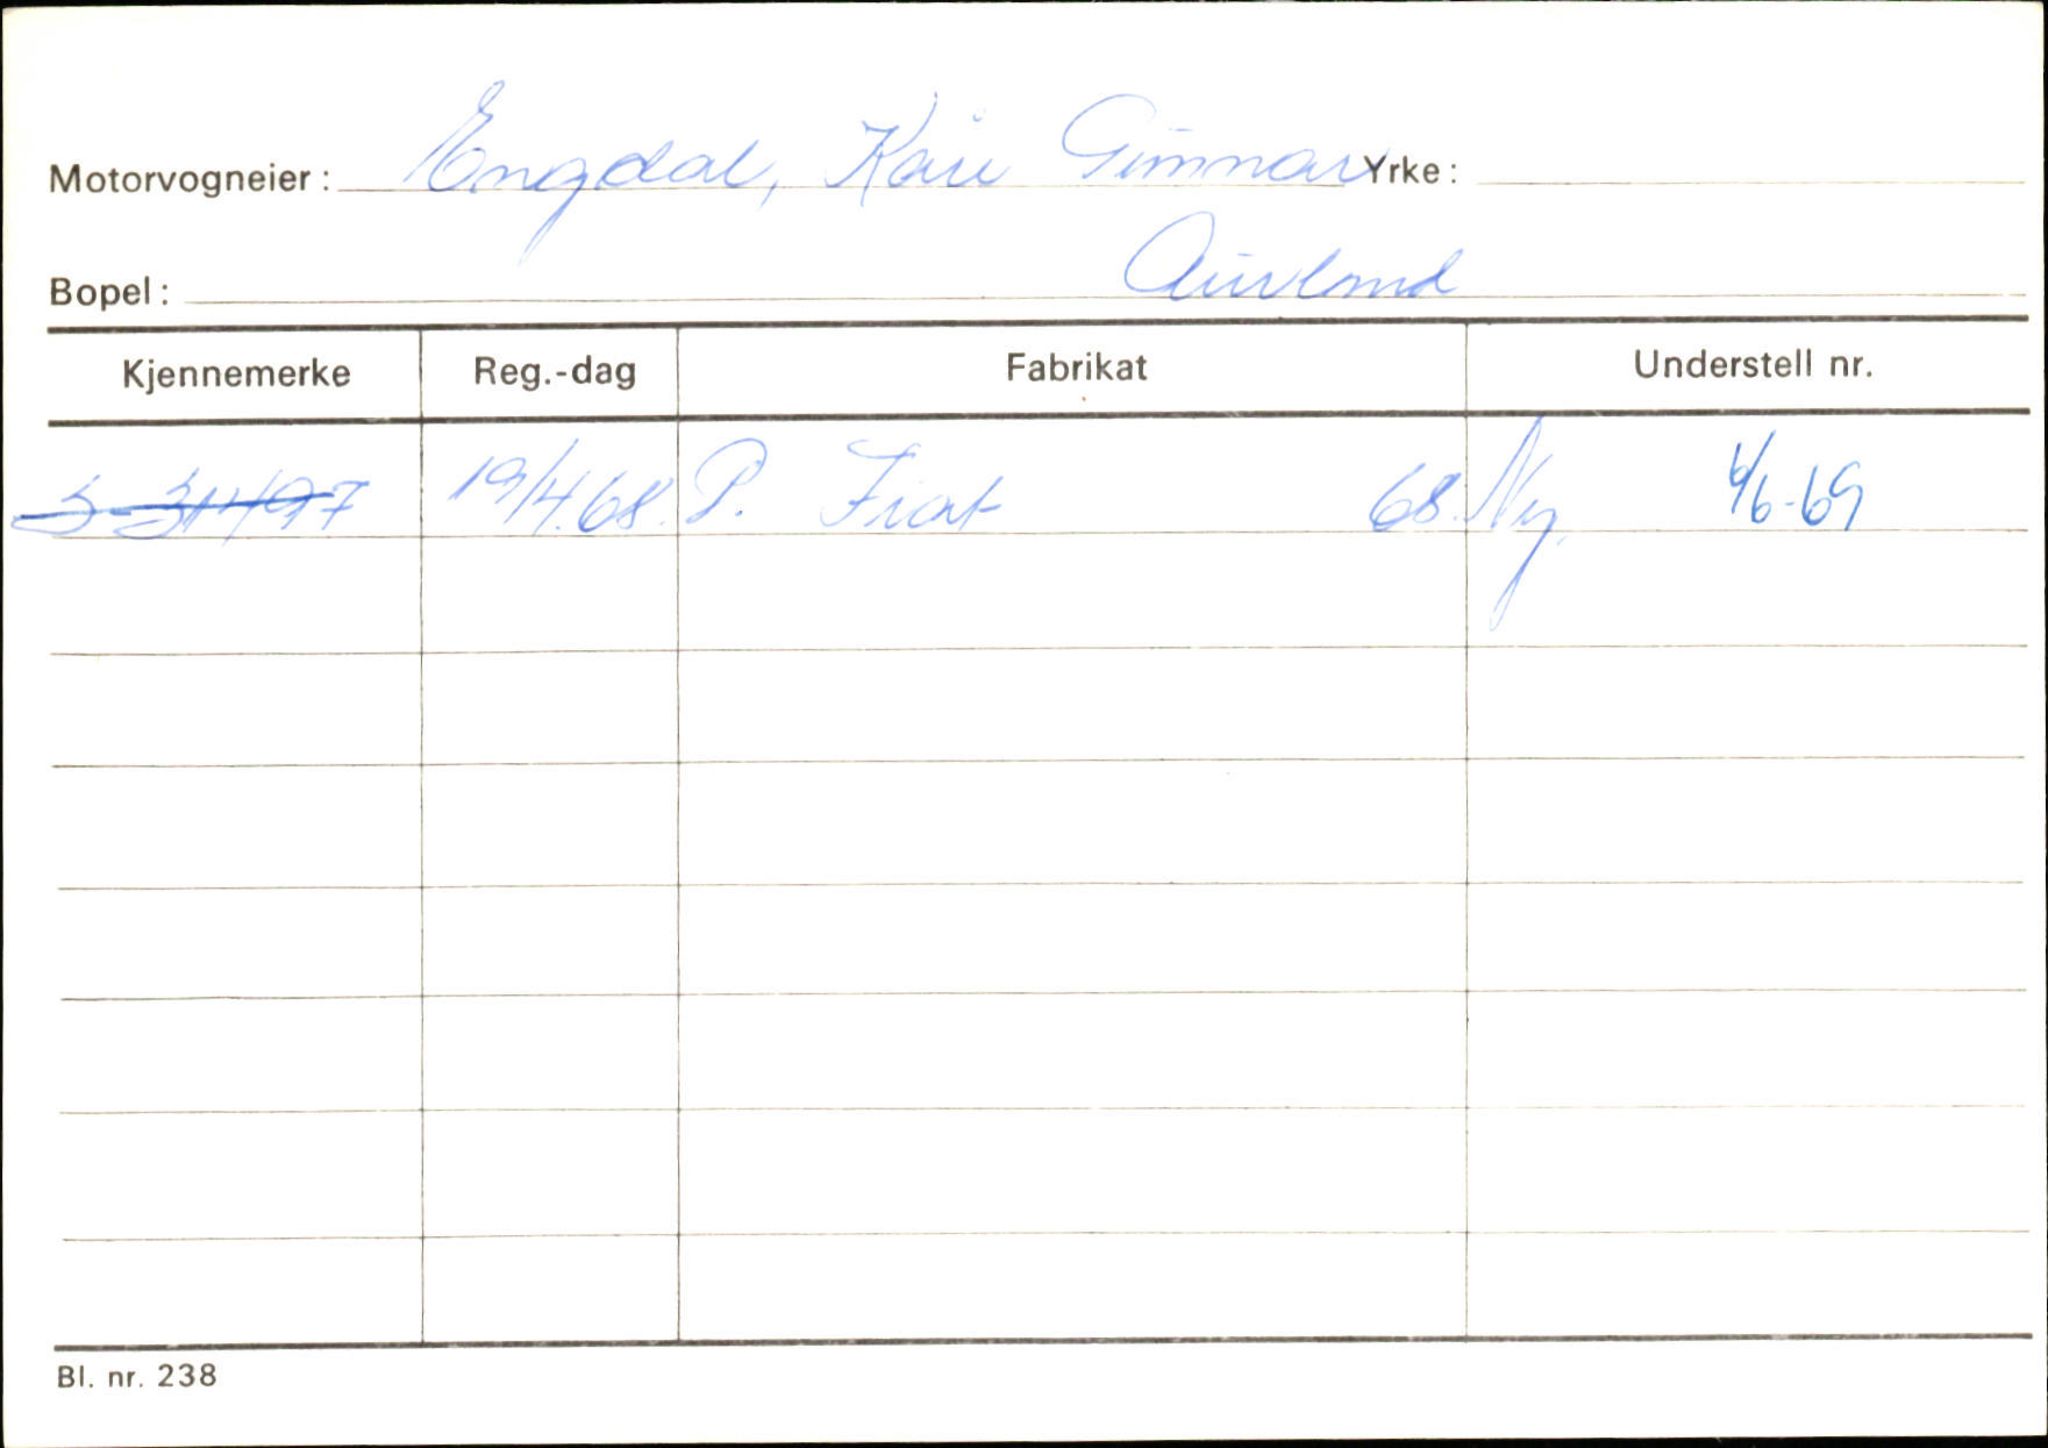 Motorvogneier: Engdal, Kåre Gunnar Yrke:
Bopel: Aurland
Kjennemerke Reg.-dag Fabrikat Understell nr.
S-31497 19/4.68. P. Fiat 68. Ny. 4/6-69
Bl. nr. 238